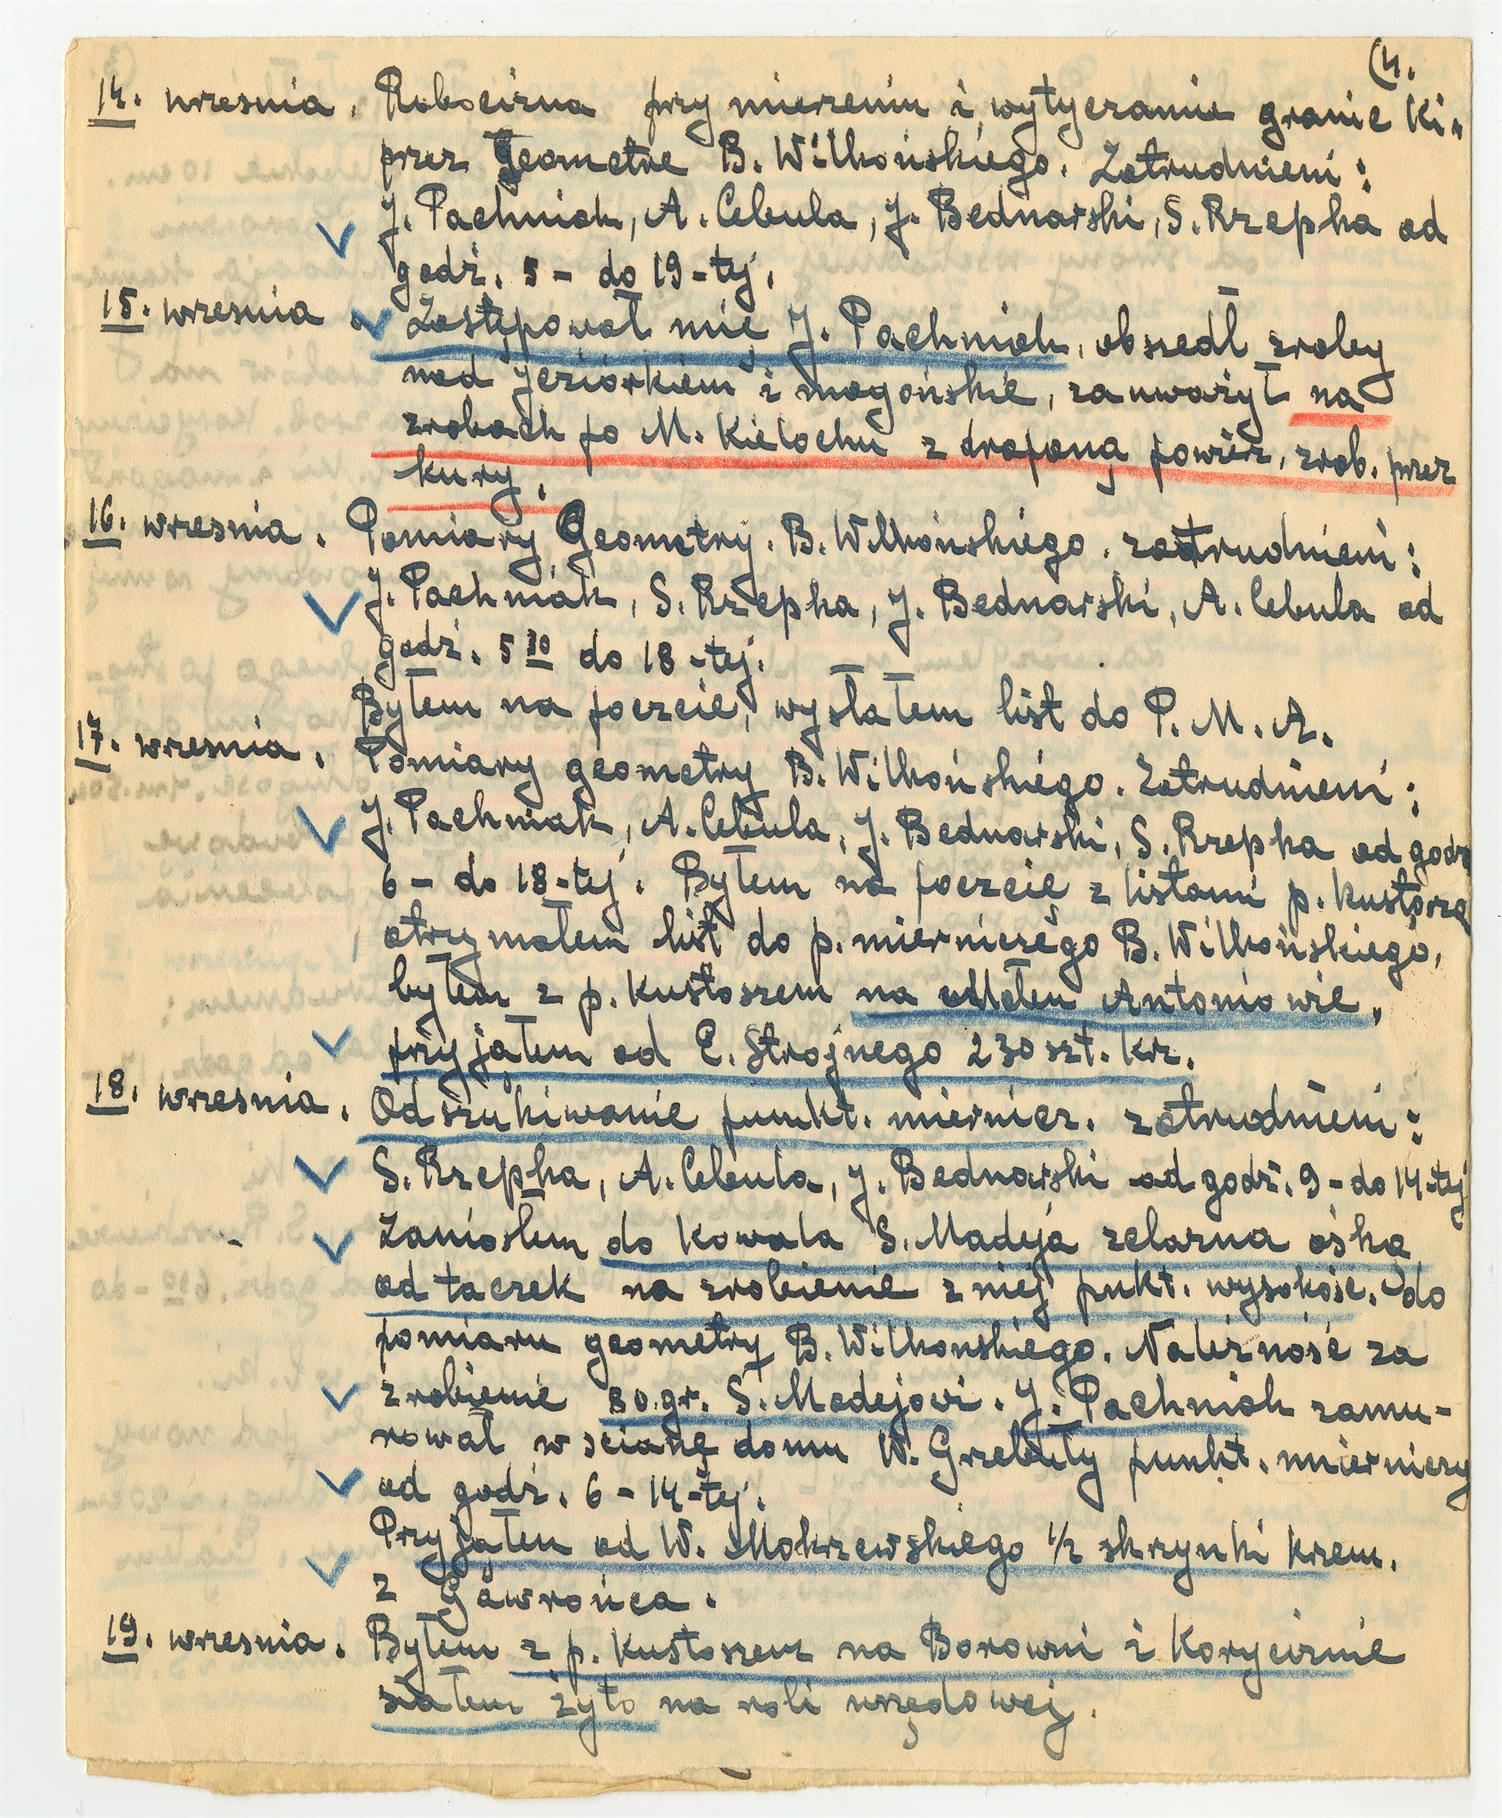 (4.
14. wresnia. Robocizna przy mierzeniu i wytyczaniu granic Ki"
przez Geometre B. Wilkońskiego. Zatrudnieni:
J. Pachniak, A. Cebula, J. Bednarski, S. Rzepka od
godź. 5 - do 19-tej.
15. wresnia. Zastępował mię J. Pachniak, obszedł zroby
nad jeziorkiem i magońskie, zauważył na
zrobach po M. Kielochu zdrapaną powierz. zrob. przez
kury.
16. wresnia. Pomiary Geometry. B. Wilkońskiego. zatrudnieni:
J. Pachniak, S. Rzepka, J. Bednarski, A. Cebula od
godź. 5 30 do 18-tej.
Byłem na poczcie, wysłałem list do P. M. A.
17. wresnia. Pomiary geometry B. Wilkońskiego. Zatrudnieni:
J. Pachniak, A. Cebula, J. Bednarski, S. Rzepka od godz
6 - do 18-tej. Byłem na poczcie z listami p. Kustosza
otrzymałem list do p. mierniczego B. Wilkońskiego,
byłem z p. Kustoszem na Antoniowie.
przyjąłem od E. Strojnego 230 szt. krz.
18. wresnia. Odszukiwanie punkt. miernicz. zatrudnieni:
S. Rzepka, A. Cebula, J. Bednarski od godź. 9 - do 14-tej
Zaniosłem do Kowala S. Madeja zelazna ośka
od taczek na zrobienie z niej pukt. wysokość. do
pomiaru geometry B. Wilkonskiego. Należność za
zrobienie 80.gr. S. Madejowi. J. Pachniak zamu-
rował w scianę domu W. Grzebuły punkt. mierniczy
od godź. 6 - 14-tej.
Przyjąłem od W. Mokrzewskiego 1/2 skrzynki krzem.
z Gawrońca.
19. wresnia. Byłem z p. Kustoszem na Borowni i Korycirnie
siałem żyto na roli urzędowej.